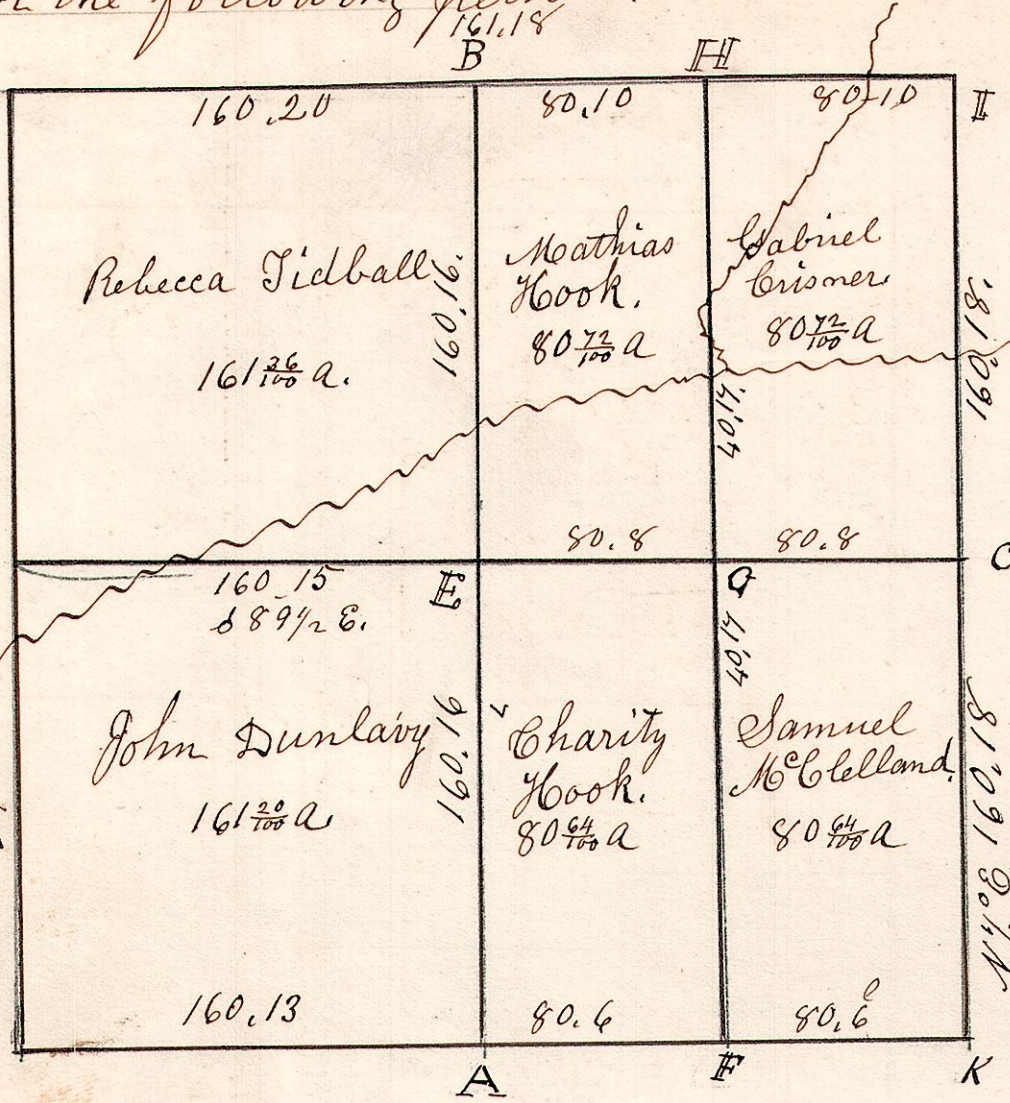 the following
161,18
B H
160.20 80,10 80,10 I
Rebecca Tidball
161 36/100 a.
160,16.
Mathias
Hook.
80 72/100 a
Gabriel
Crisner
80 72/100 a
160,18.
40,17.
80.8 80.8
C
160.15 E G
S 89 1/2 E.
40,17
John Dunlavy
161 20/100 a.
160,16
Charity
Hook.
80 64/100 a
Samuel
McClelland.
80 64/100 a
160,18
160,13 80.6 80,6
A F K